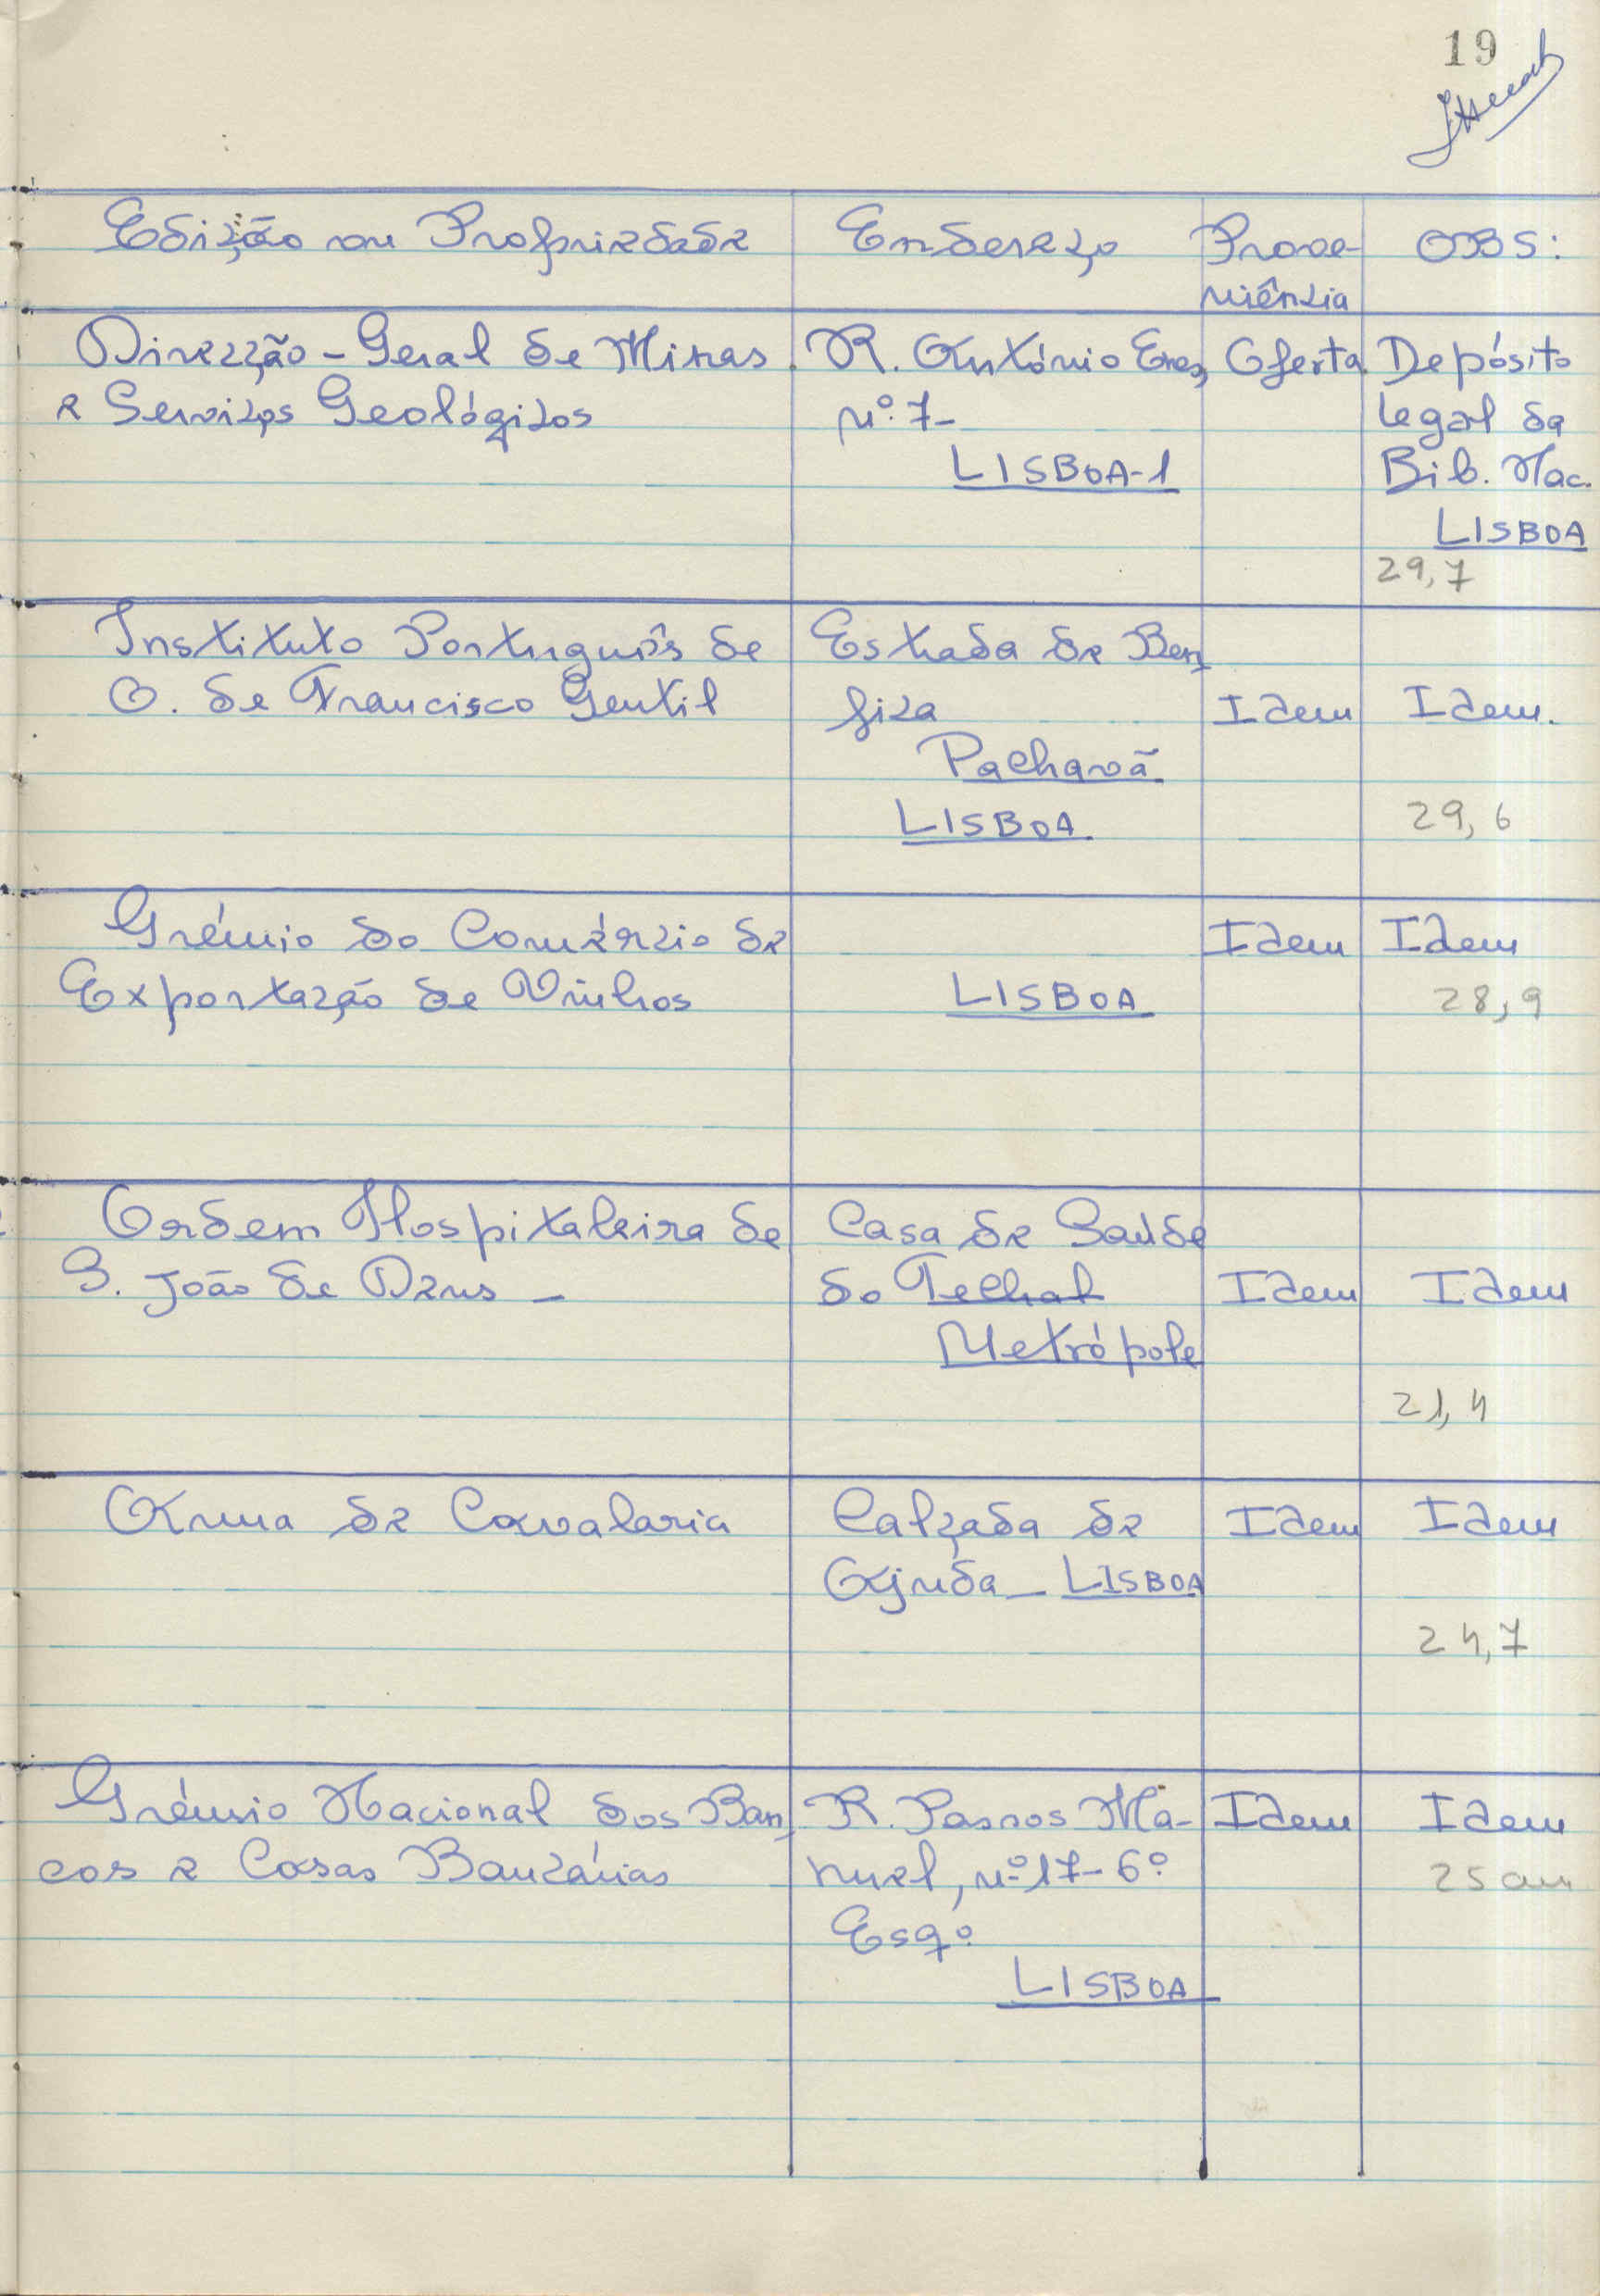 19
Edição ou Propriedade
Endereço
Prove-
niência
OBS:
Direcção-Geral de Minas
e Serviços Geológicos
R. António Enes,
nº. 7-
LISBOA-1
Oferta
Depósito
legal da
Bib. Nac.
LISBOA
29,7
Instituto Português de
O. de Francisco Gentil
Estrada de Ben
fica
Palhavã
LISBOA
Idem
Idem.
29,6
Grémio do Comércio de
Exportação de Vinhos
LISBOA
Idem
Idem
28,9
Ordem Hospitaleira de
S. João de Deus -
Casa de Saúde
do Telhal
Metrópole
Idem
Idem
21,4
Arma de Cavalaria
Calçada de
Ajuda - LISBOA
Idem
Idem
24,7
Grémio Nacional dos Ban
cos e Casas Bancárias
R. Passos Ma-
nuel, nº 17-6º
Esqº
LISBOA
Idem
Idem
25 cm